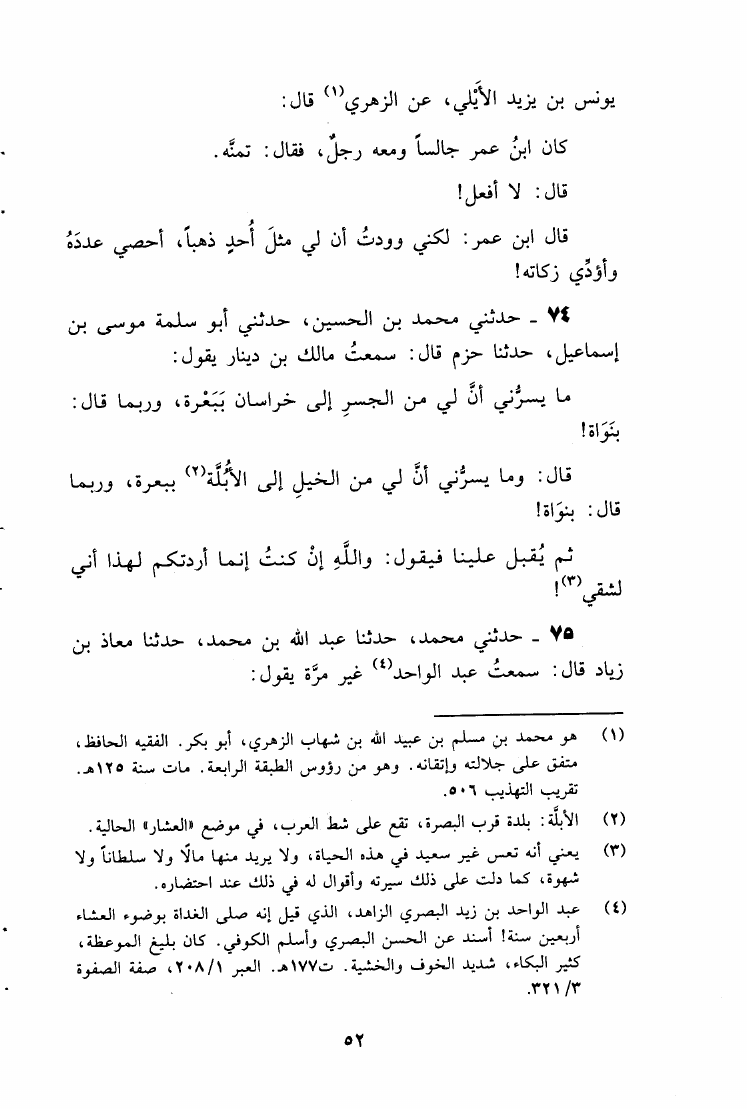 يونس بن يزيد الأَيْلي، عن الزهري(١) قال:
كان ابنُ عمر جالساً ومعه رجلٌ، فقال: تمنَّه.
قال: لا أفعل!
قال ابن عمر: لكني وودتُ أن لي مثلَ أُحدٍ ذهباً، أحصي عددَهُ
وأؤدِّي زكاته!
٧٤ ـ حدثني محمد بن الحسين، حدثني أبو سلمة موسى بن
إسماعيل، حدثنا حزم قال: سمعتُ مالك بن دينار يقول:
ما يسرُّني أنَّ لي من الجسرِ إلى خراسان بَبَعْرة، وربما قال:
بنَوَاة!
قال: وما يسرُّني أنَّ لي من الخيلِ إلى الأُبُلَّة(٢) ببعرة، وربما
قال: بنواة!
ثم يُقبل علينا فيقول: واللَّهِ إنْ كنتُ إنما أردتكم لهذا أني
لشقي(٣)!
٧٥ ـ حدثني محمد، حدثنا عبد الله بن محمد، حدثنا معاذ بن
زياد قال: سمعتُ عبد الواحد(٤) غير مرَّة يقول:
(١) هو محمد بن مسلم بن عبيد الله بن شهاب الزهري، أبو بكر. الفقيه الحافظ،
متفق على جلالته وإتقانه. وهو من رؤوس الطبقة الرابعة. مات سنة ١٢٥هـ.
تقريب التهذيب ٥٠٦.
(٢) الأبلَّة: بلدة قرب البصرة، تقع على شط العرب، في موضع «العشار» الحالية.
(٣) يعني أنه تعس غير سعيد في هذه الحياة، ولا يريد منها مالًا ولا سلطاناً ولا
شهوة، كما دلت على ذلك سيرته وأقوال له في ذلك عند احتضاره.
(٤) عبد الواحد بن زيد البصري الزاهد، الذي قيل إنه صلى الغداة بوضوء العشاء
أربعين سنة! أسند عن الحسن البصري وأسلم الكوفي. كان بليغ الموعظة،
كثير البكاء، شديد الخوف والخشية. ت١٧٧هـ. العبر ٢٠٨/١، صفة الصفوة
٣٢١/٣.
٥٢